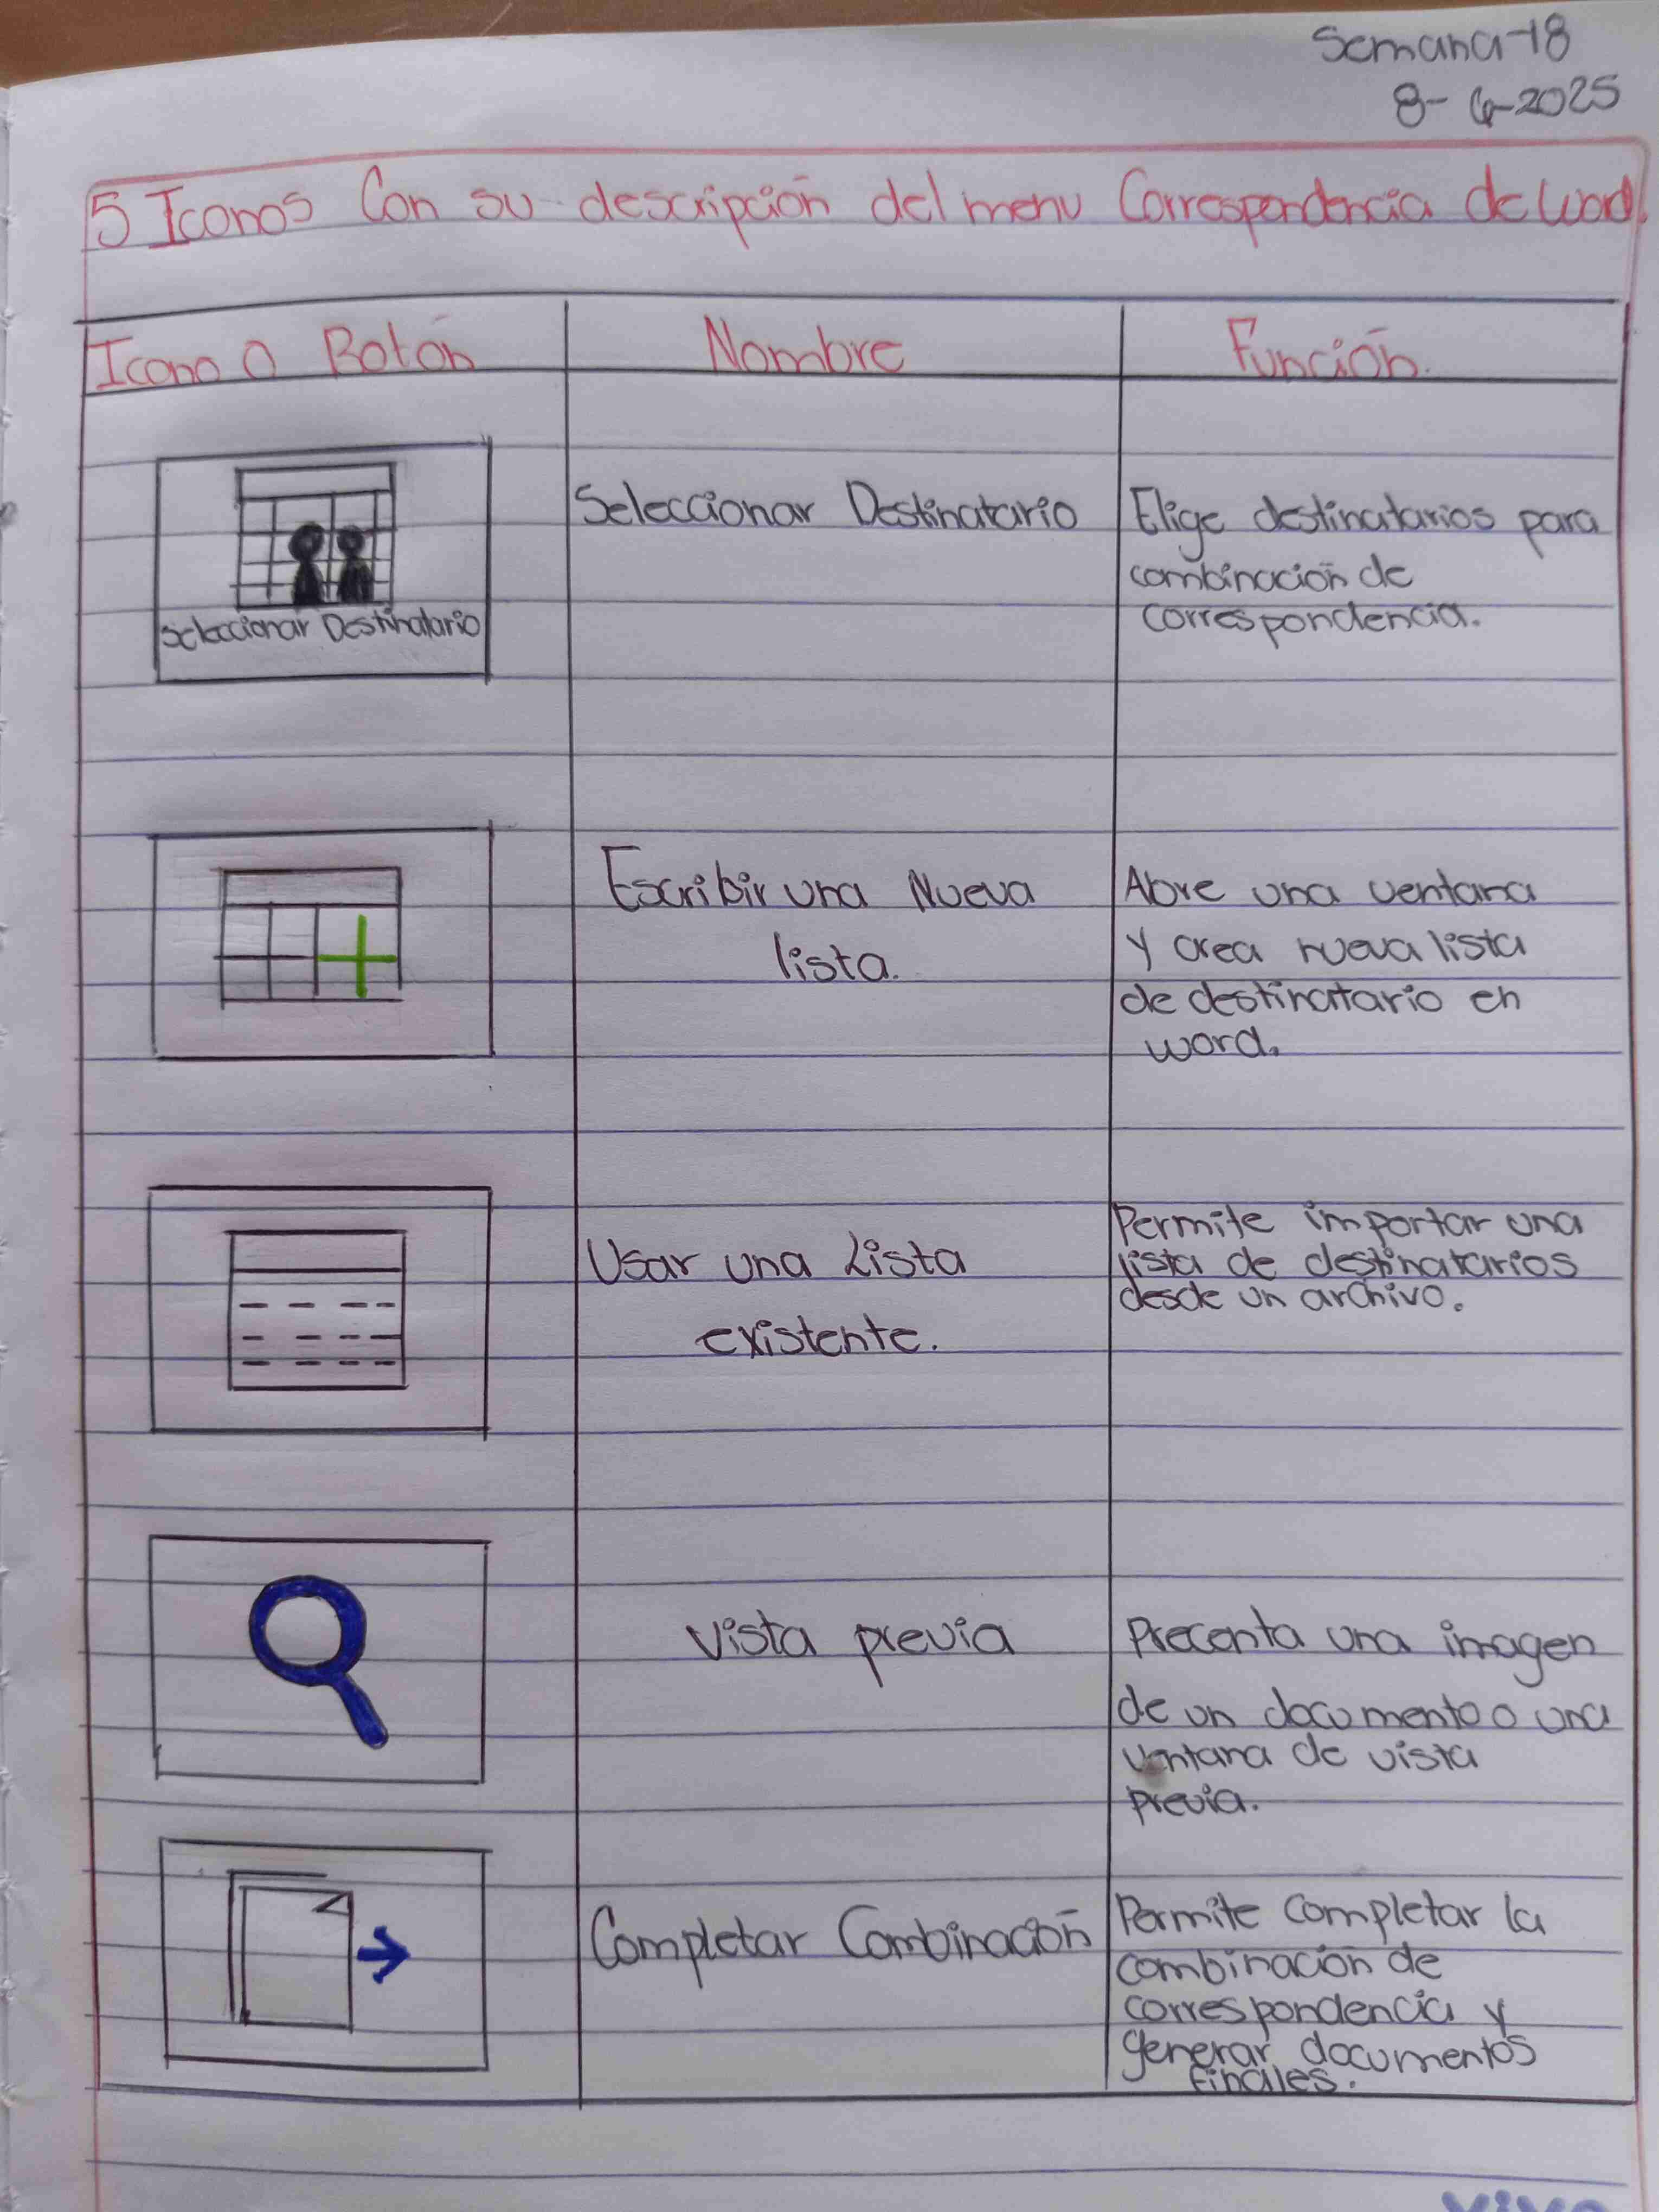 Semana-18
8-6-2025
5 Iconos Con su descripción del menu Correspondencia de Word.
Icono O Botón
Nombre
Función.
Seleccionar Destinatario
Seleccionar Destinatario
Elige destinatarios para
combinación de
correspondencia.
Escribir una Nueva
lista.
Abre una ventana
y crea nueva lista
de destinatario en
word.
Usar una Lista
existente.
Permite importar una
lista de destinatarios
desde un archivo.
Vista previa
Precenta una imagen
de un documento o una
ventana de vista
previa.
Completar Combinación
Permite completar la
combinación de
correspondencia y
generar documentos
finales.